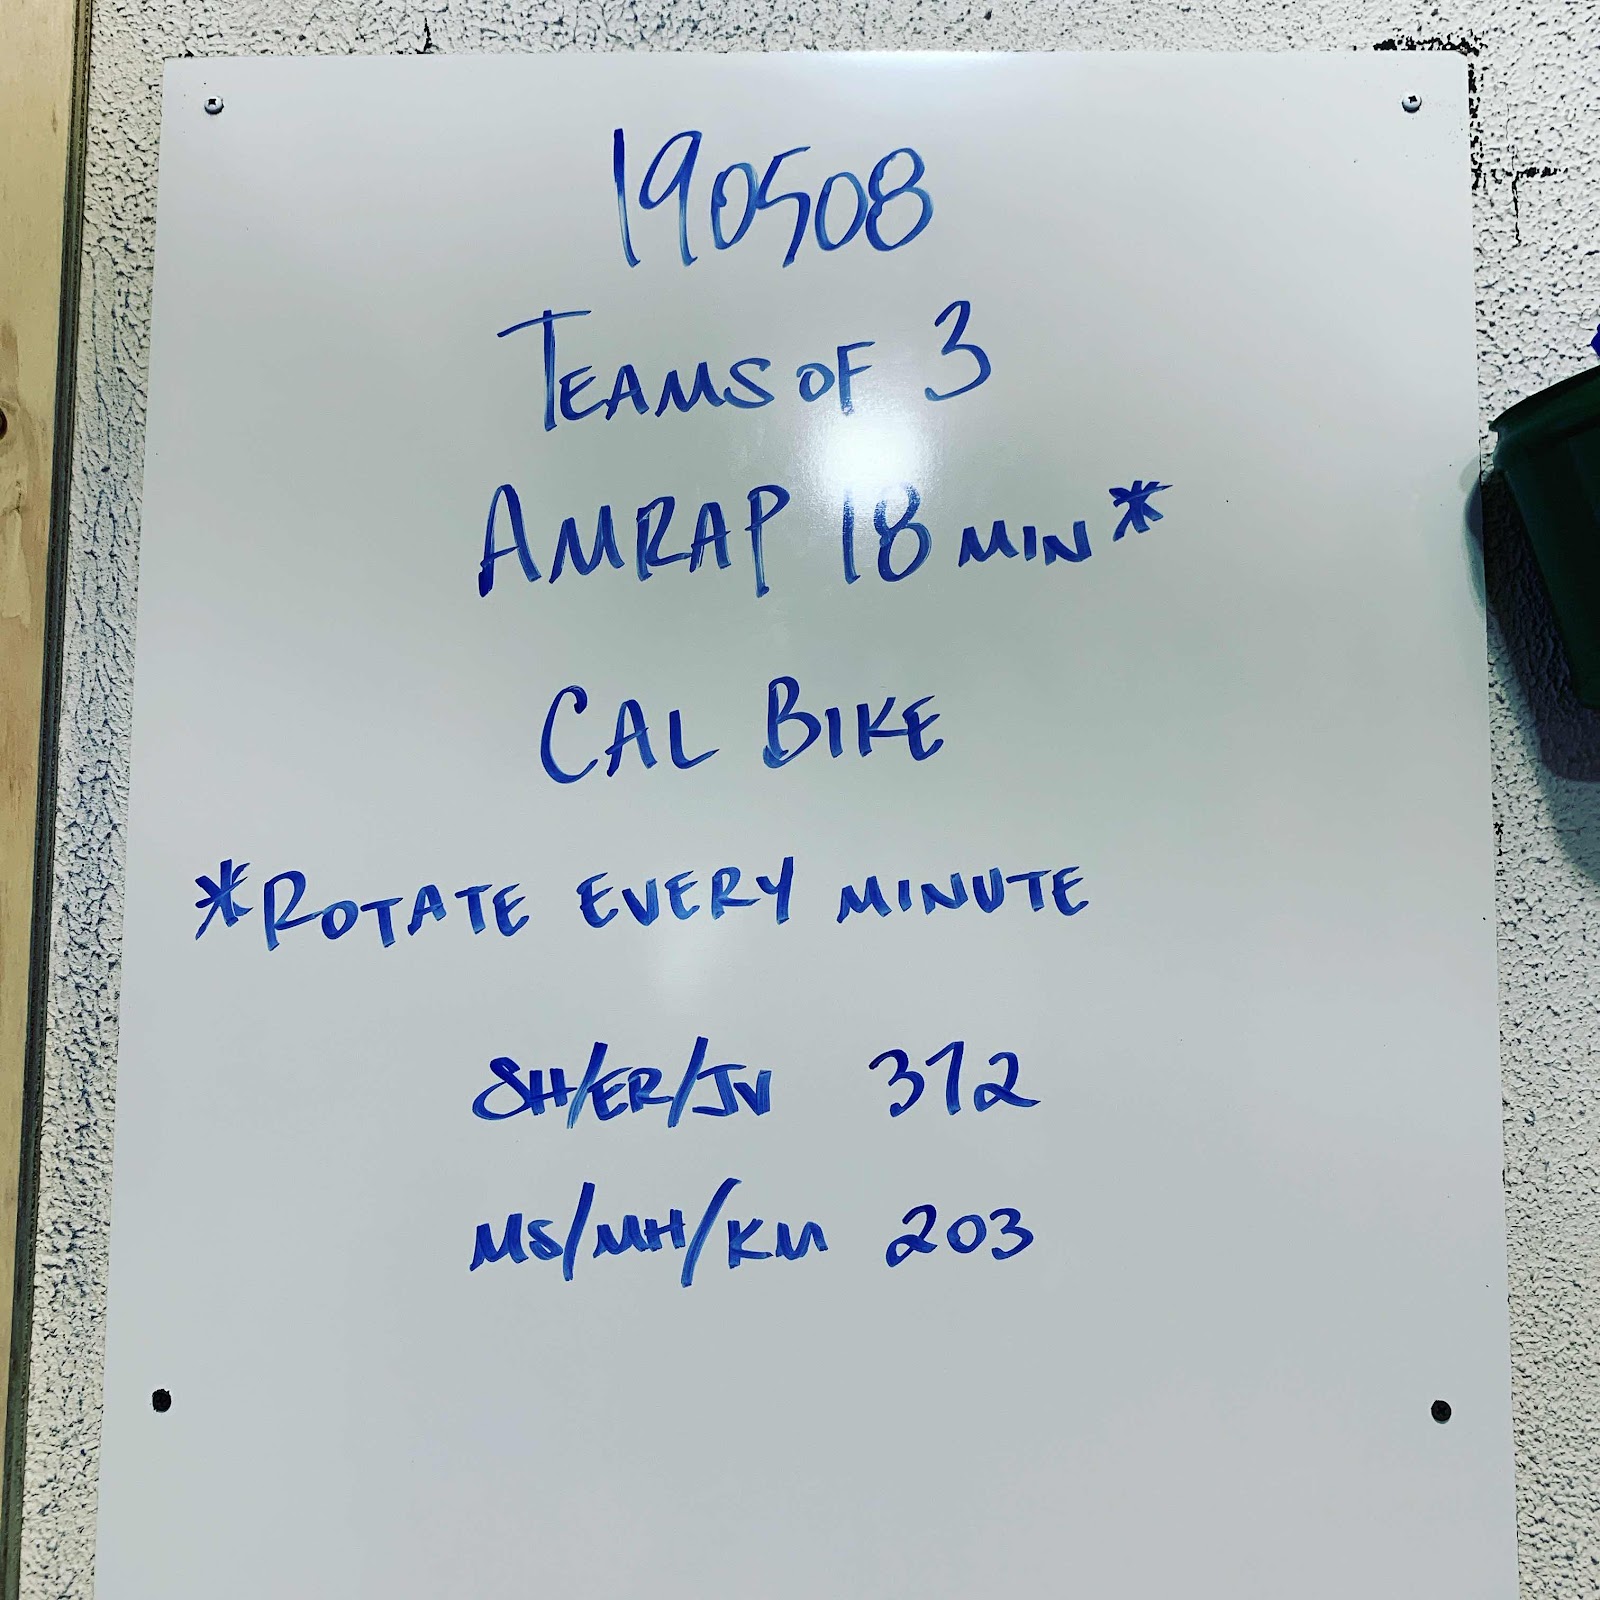 190508
TEAMS OF 3
AMRAP 18 MIN*
CAL BIKE
*ROTATE EVERY MINUTE
SH/ER/JV 372
MS/MH/KM 203